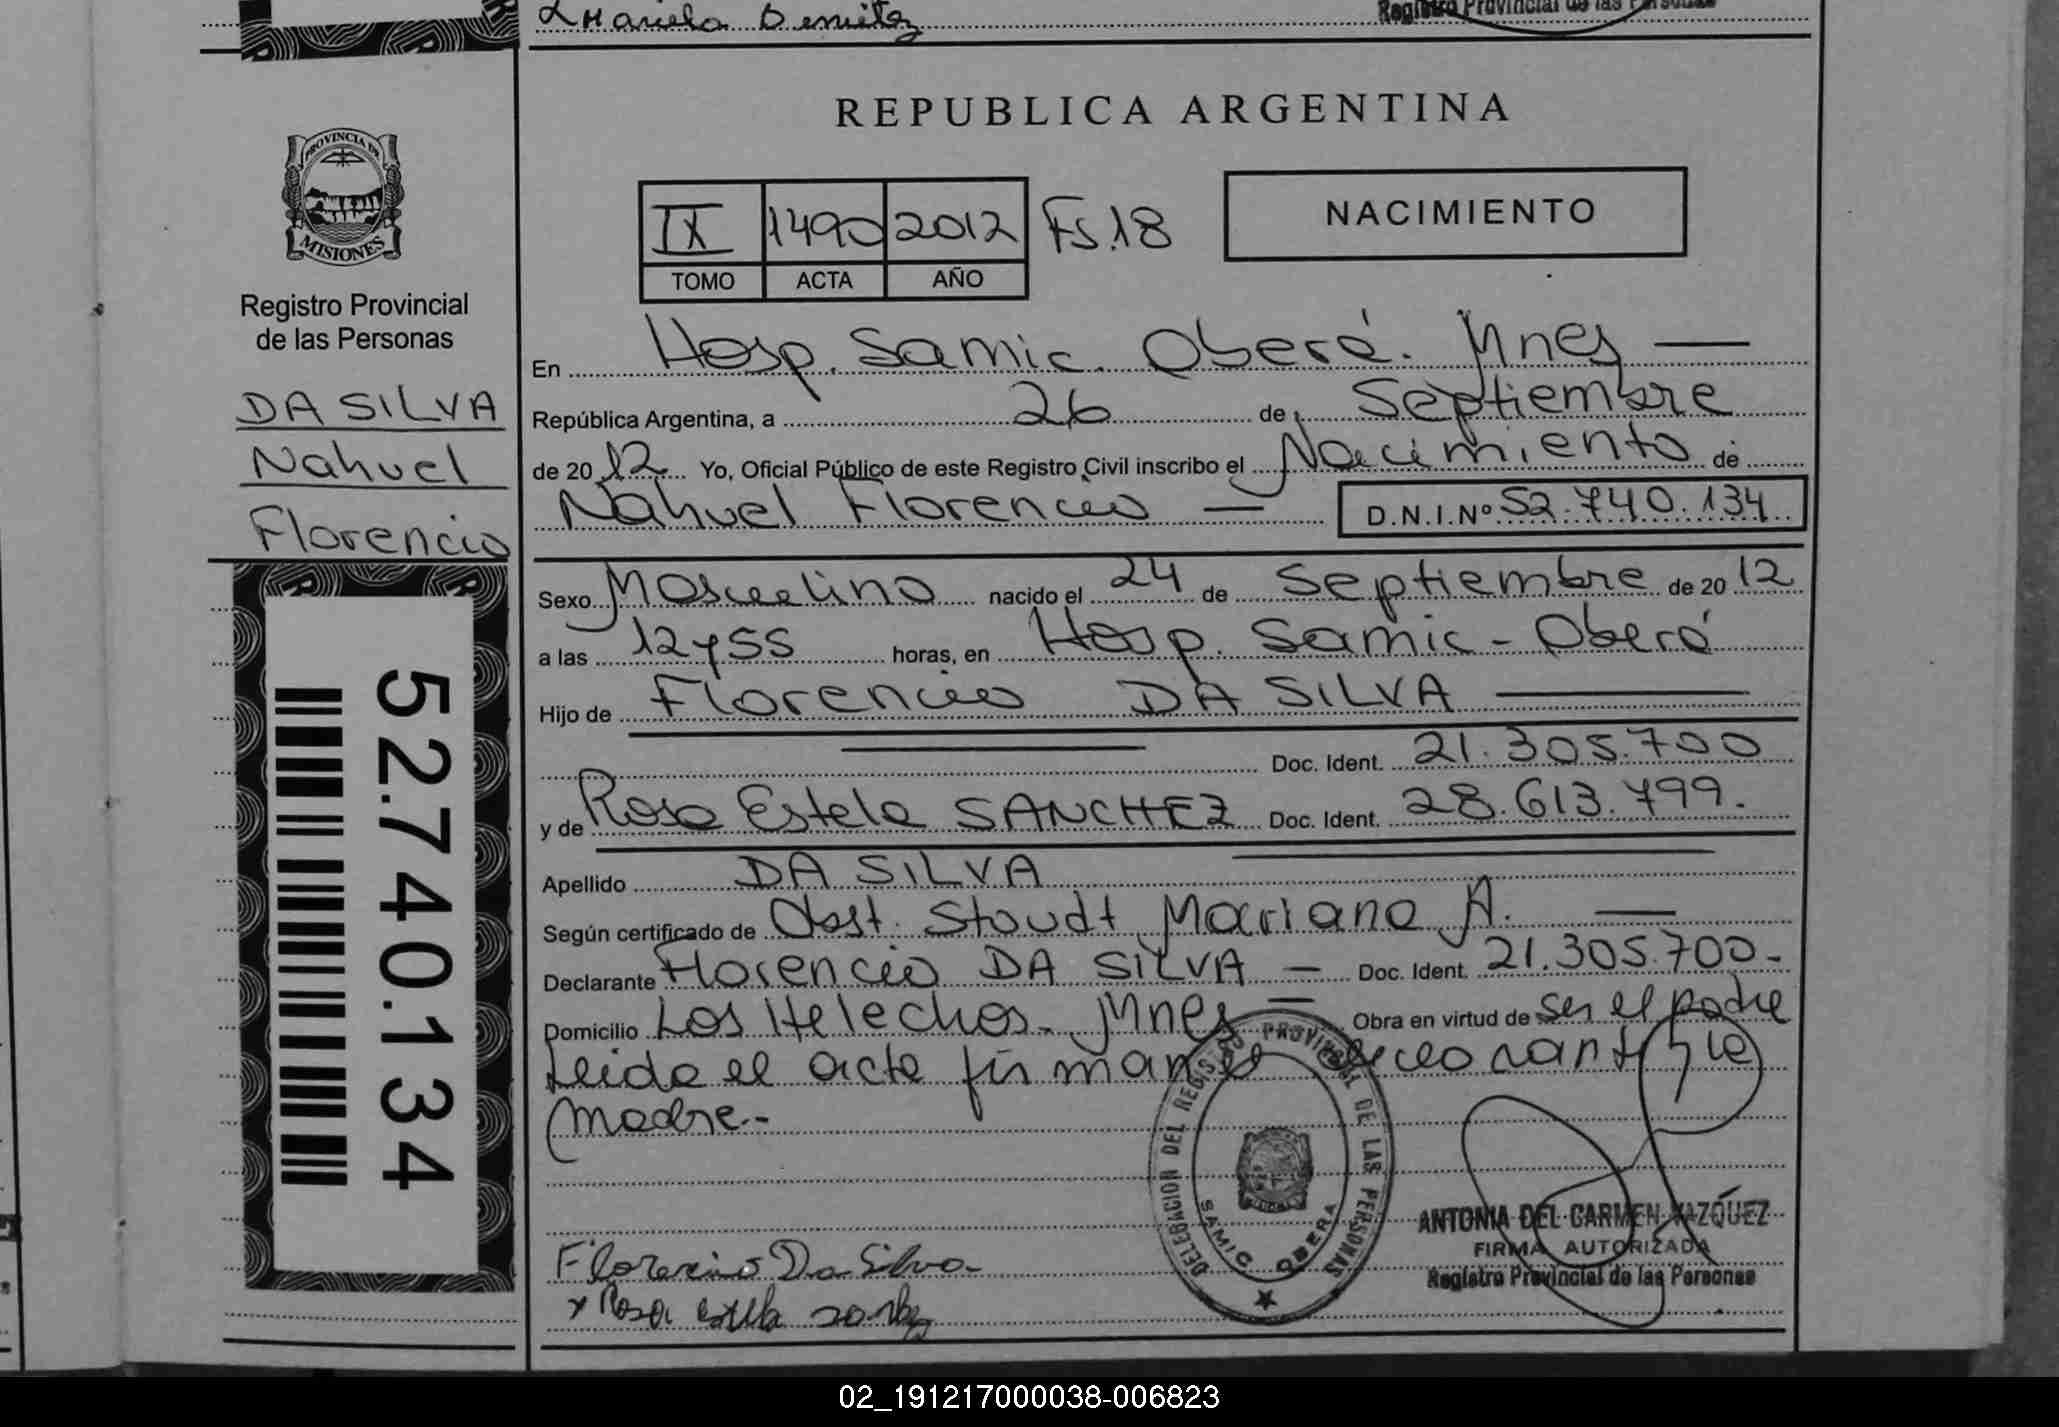 Mariela Benitez
Registro Provincial de las Personas
REPUBLICA ARGENTINA
PROVINCIA DE
MISIONES
Registro Provincial
de las Personas
DA SILVA
Nahuel
Florencio
52.740.134
IX 1490 2012 Fs.18
TOMO ACTA AÑO
NACIMIENTO
En Hosp. Samic. Oberá. Mnes —
República Argentina, a 26 de Septiembre
de 2012 Yo, Oficial Público de este Registro Civil inscribo el Nacimiento de
Nahuel Florencio — D.N.I.Nº 52.740.134
Sexo Masculino nacido el 24 de Septiembre de 2012
a las 12y55 horas, en Hosp. Samic - Oberá
Hijo de Florencio DA SILVA —
Doc. Ident. 21.305.700
y de Rosa Estela SANCHEZ Doc. Ident. 28.613.799.
Apellido DA SILVA
Según certificado de Obst. Stoudt Mariana A. —
Declarante Florencio DA SILVA — Doc. Ident. 21.305.700-
Domicilio Los Helechos - Mnes — Obra en virtud de ser el padre
Leida el acta firman la
madre.-
DELEGACION DEL REGISTRO PROVINCIAL DE LAS PERSONAS
SAMIC OBERA
Florencio Da Silva
x Rosa estela
ANTONIA DEL CARMEN VAZQUEZ
FIRMA AUTORIZADA
Registro Provincial de las Personas
02_191217000038-006823